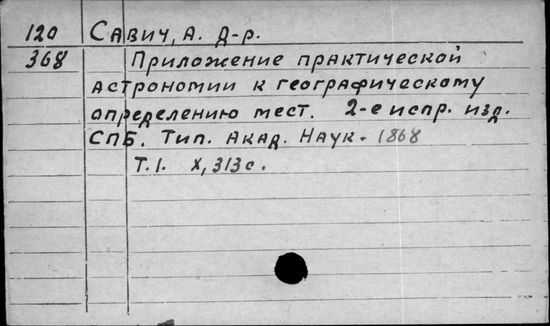 120 Савич, А. Д-р.
368 Приложение практической
астрономии к географическому
определению мест. 2-е испр. изд.
СПБ. Тип. Акад. Наук. 1868
Т.1. X, 313с.